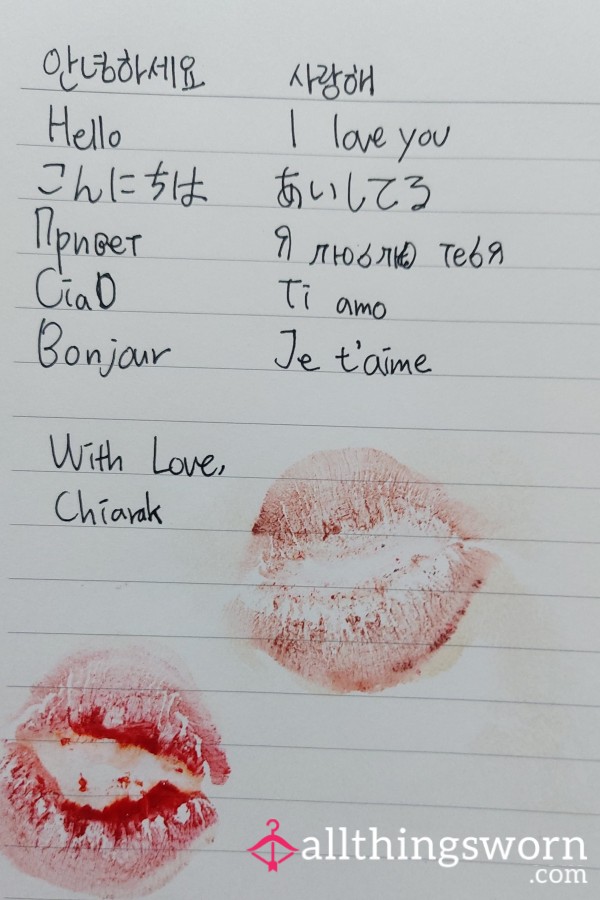 안녕하세요 사랑해
Hello I love you
こんにちは あいしてる
Привет Я люблю тебя
Ciao Ti amo
Bonjour Je t'aime
With Love,
Chiarak
allthingsworn
.com